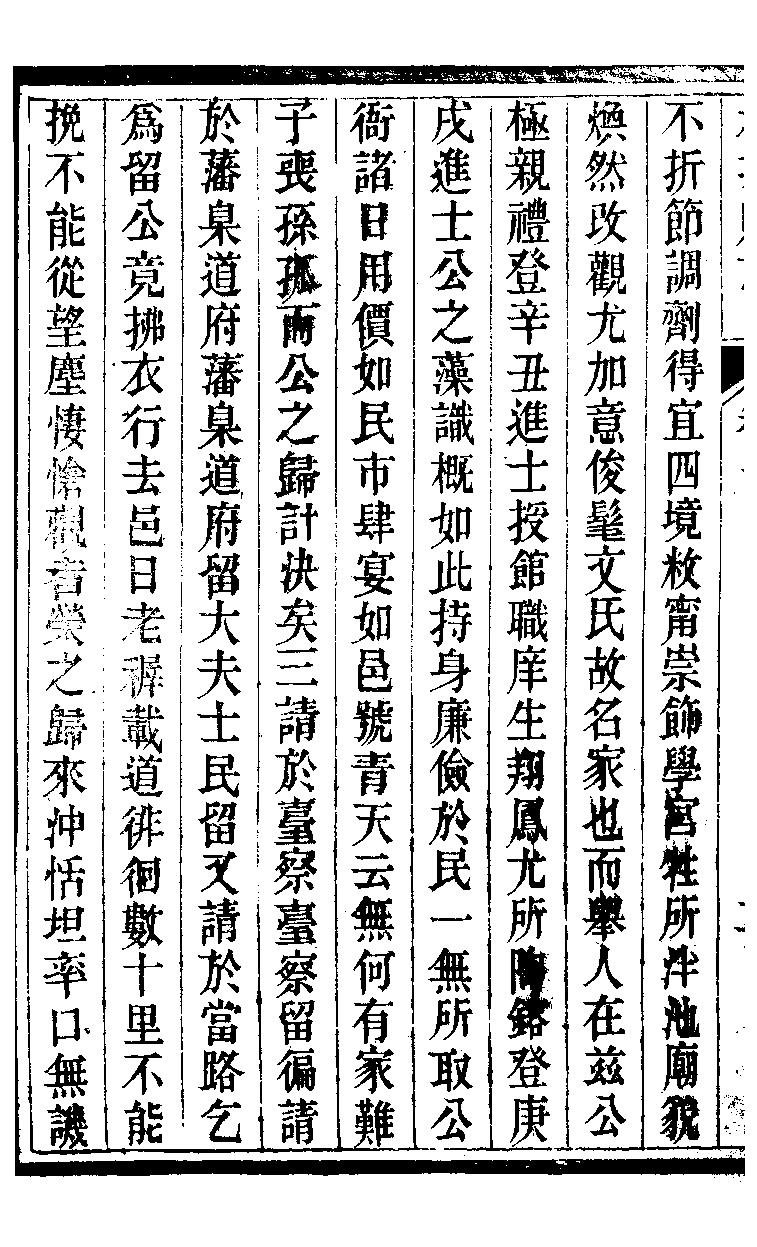 不折節調劑得宜四境敉甯崇飾學宮牲所泮池廟貌
煥然改觀尤加意俊髦文氏故名家也而舉人在茲公
極親禮登辛丑進士授館職庠生翔鳳尤所陶鎔登庚
戌進士公之藻識概如此持身廉儉於民一無所取公
衙諸日用價如民市肆宴如邑號青天云無何有家難
子喪孫孤而公之歸計決矣三請於臺察臺察留徧請
於藩臬道府藩臬道府留大夫士民留又請於當路乞
爲留公竟拂衣行去邑日老穉載道徘徊數十里不能
挽不能從望塵悽愴觀者榮之歸來沖恬坦率口無譏